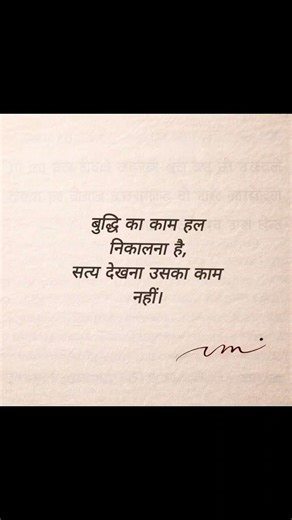 बुद्धि का काम हल
निकालना है,
सत्य देखना उसका काम
नहीं।